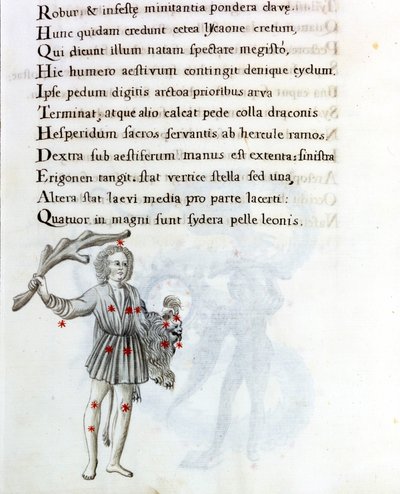 Robur & infestę minitantia pondera clavę.
Hunc quidam credunt cetea lycaone cretum,
Qui dicunt illum natam spectare megistó,
Hic humero aestivum contingit denique cyclum.
Ipse pedum digitis arctoa prioribus arva
Terminat, atque alio calcat pede colla draconis
Hesperidum sacros servantis ab hercule ramos,
Dextra sub aestiferum manus est extenta: sinistra
Erigonen tangit, stat vertice stella sed una,
Altera stat laevi media pro parte lacerti:
Quatuor in magni sunt sydera pelle leonis.